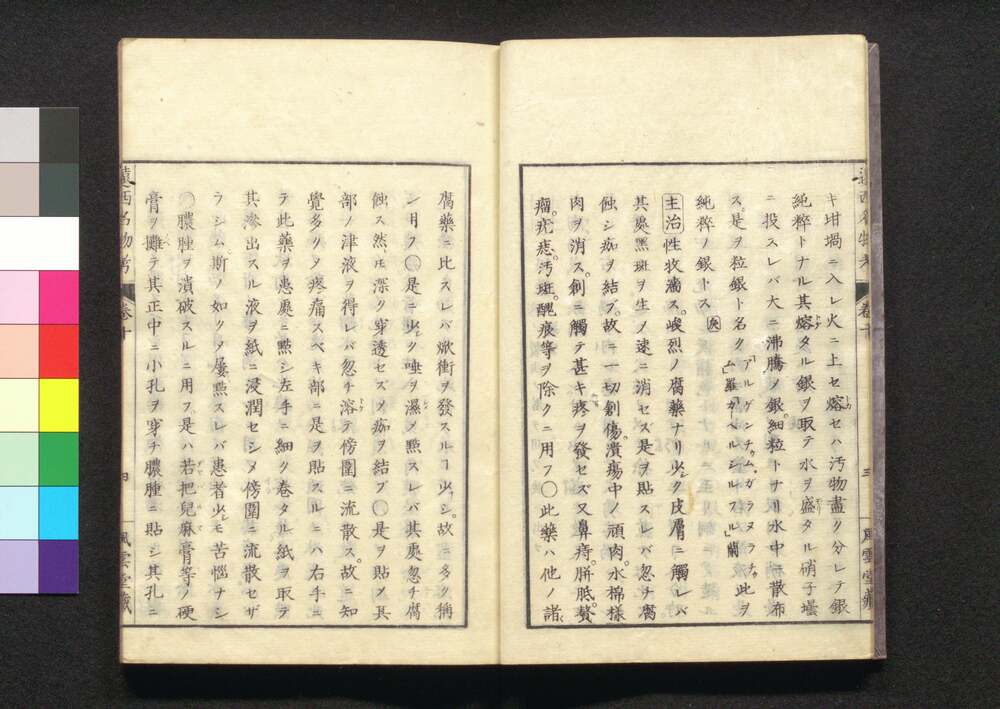 キ坩堝ニ入レ火ニ上セ熔セハ汚物盡ク分レテ銀
純粹トナル其熔タル銀ヲ取テ水ヲ盛タル硝子壜
ニ投スレバ大ニ沸騰ノ銀細粒トナリ水中ニ散布
ス是ヲ粒銀ト名ク「アルゲンチウム、ガラヌラチ」此ヲ
純粹ノ銀トス
主治性收濇ス峻烈ノ腐藥ナリ少ク皮膚ニ觸レバ
其處黑斑ヲ生ノ速ニ消セズ是ヲ貼スレバ忽チ腐
蝕シ痂ヲ結ブ故ニ一切創傷潰瘍中ノ頑肉水棉樣
肉ヲ消ス創ニ觸テ甚キ疼ヲ發セズ又鼻痔胼胝贅
瘤疣痣汚斑醜痕等ヲ除クニ用フ〇此藥ハ他ノ諸
三
風雲堂藏
遠西名物考
卷十
腐藥ニ比スレバ焮衝ヲ發スルヿ少シ故ニ多ク稱
シ用フ〇是ニ少ク唾ヲ濕メ點スレバ其處忽チ腐
蝕ス然𪜈深ク穿透セズメ痂ヲ結ブ〇是ヲ貼メ其
部ノ津液ヲ得レバ忽チ溶テ傍圍ニ流散ス故ニ知
覺多クメ疼痛スベキ部ニ是ヲ貼スルニハ右手ニ
テ此藥ヲ患處ニ點シ左手ニ細ク卷タル紙ヲ取テ
其滲出スル液ヲ紙ニ浸潤セシメ傍圍ニ流散セザ
ラシム斯ノ如クメ屢點スレバ患者少モ苦惱ナシ
〇膿腫ヲ潰破スルニ用フ是ハ若把兒麻膏等ノ硬
膏ヲ攤テ其正中ニ小孔ヲ穿チ膿腫ニ貼シ其孔ニ
遠西名物考
卷十
四
風雲堂藏